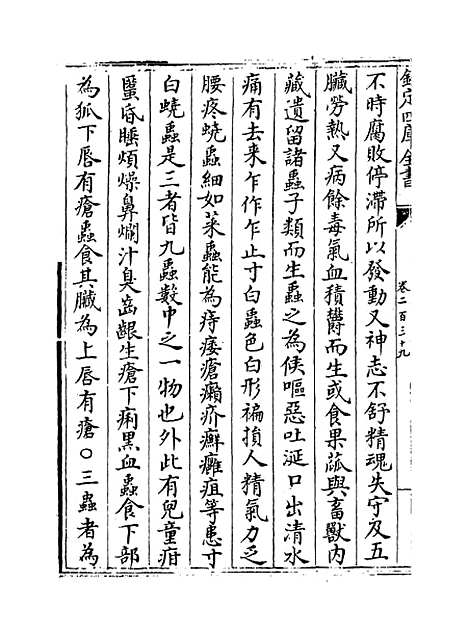 欽定四庫全書
卷二百三十九
不時腐敗停滯所以發動又神志不舒精魂失守及五
臟勞熱又病餘毒氣血積欝而生或食果蓏與畜獸内
藏遺留諸蟲子類而生蟲之為候嘔惡吐涎口出清水
痛有去来乍作乍止寸白蟲色白形褊損人精氣力乏
腰疼蟯蟲細如菜蟲能為痔瘻瘡癩疥癬癰疽等患寸
白蟯蟲是三者皆九蟲數中之一物也外此有兒童疳
䘌昏睡煩燥鼻爛汁臭齒齦生瘡下痢黑血蟲食下部
為狐下唇有瘡蟲食其臟為上唇有瘡○三蟲者為